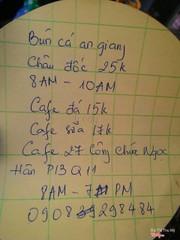 Bún cá an giang
Châu đốc 25k
8AM - 10AM
Cafe đá 15k
Cafe sữa 17k
Cafe 27 Công Chúa Ngọc
Hân P13 Q11
8AM - 7 PM
0908 298484